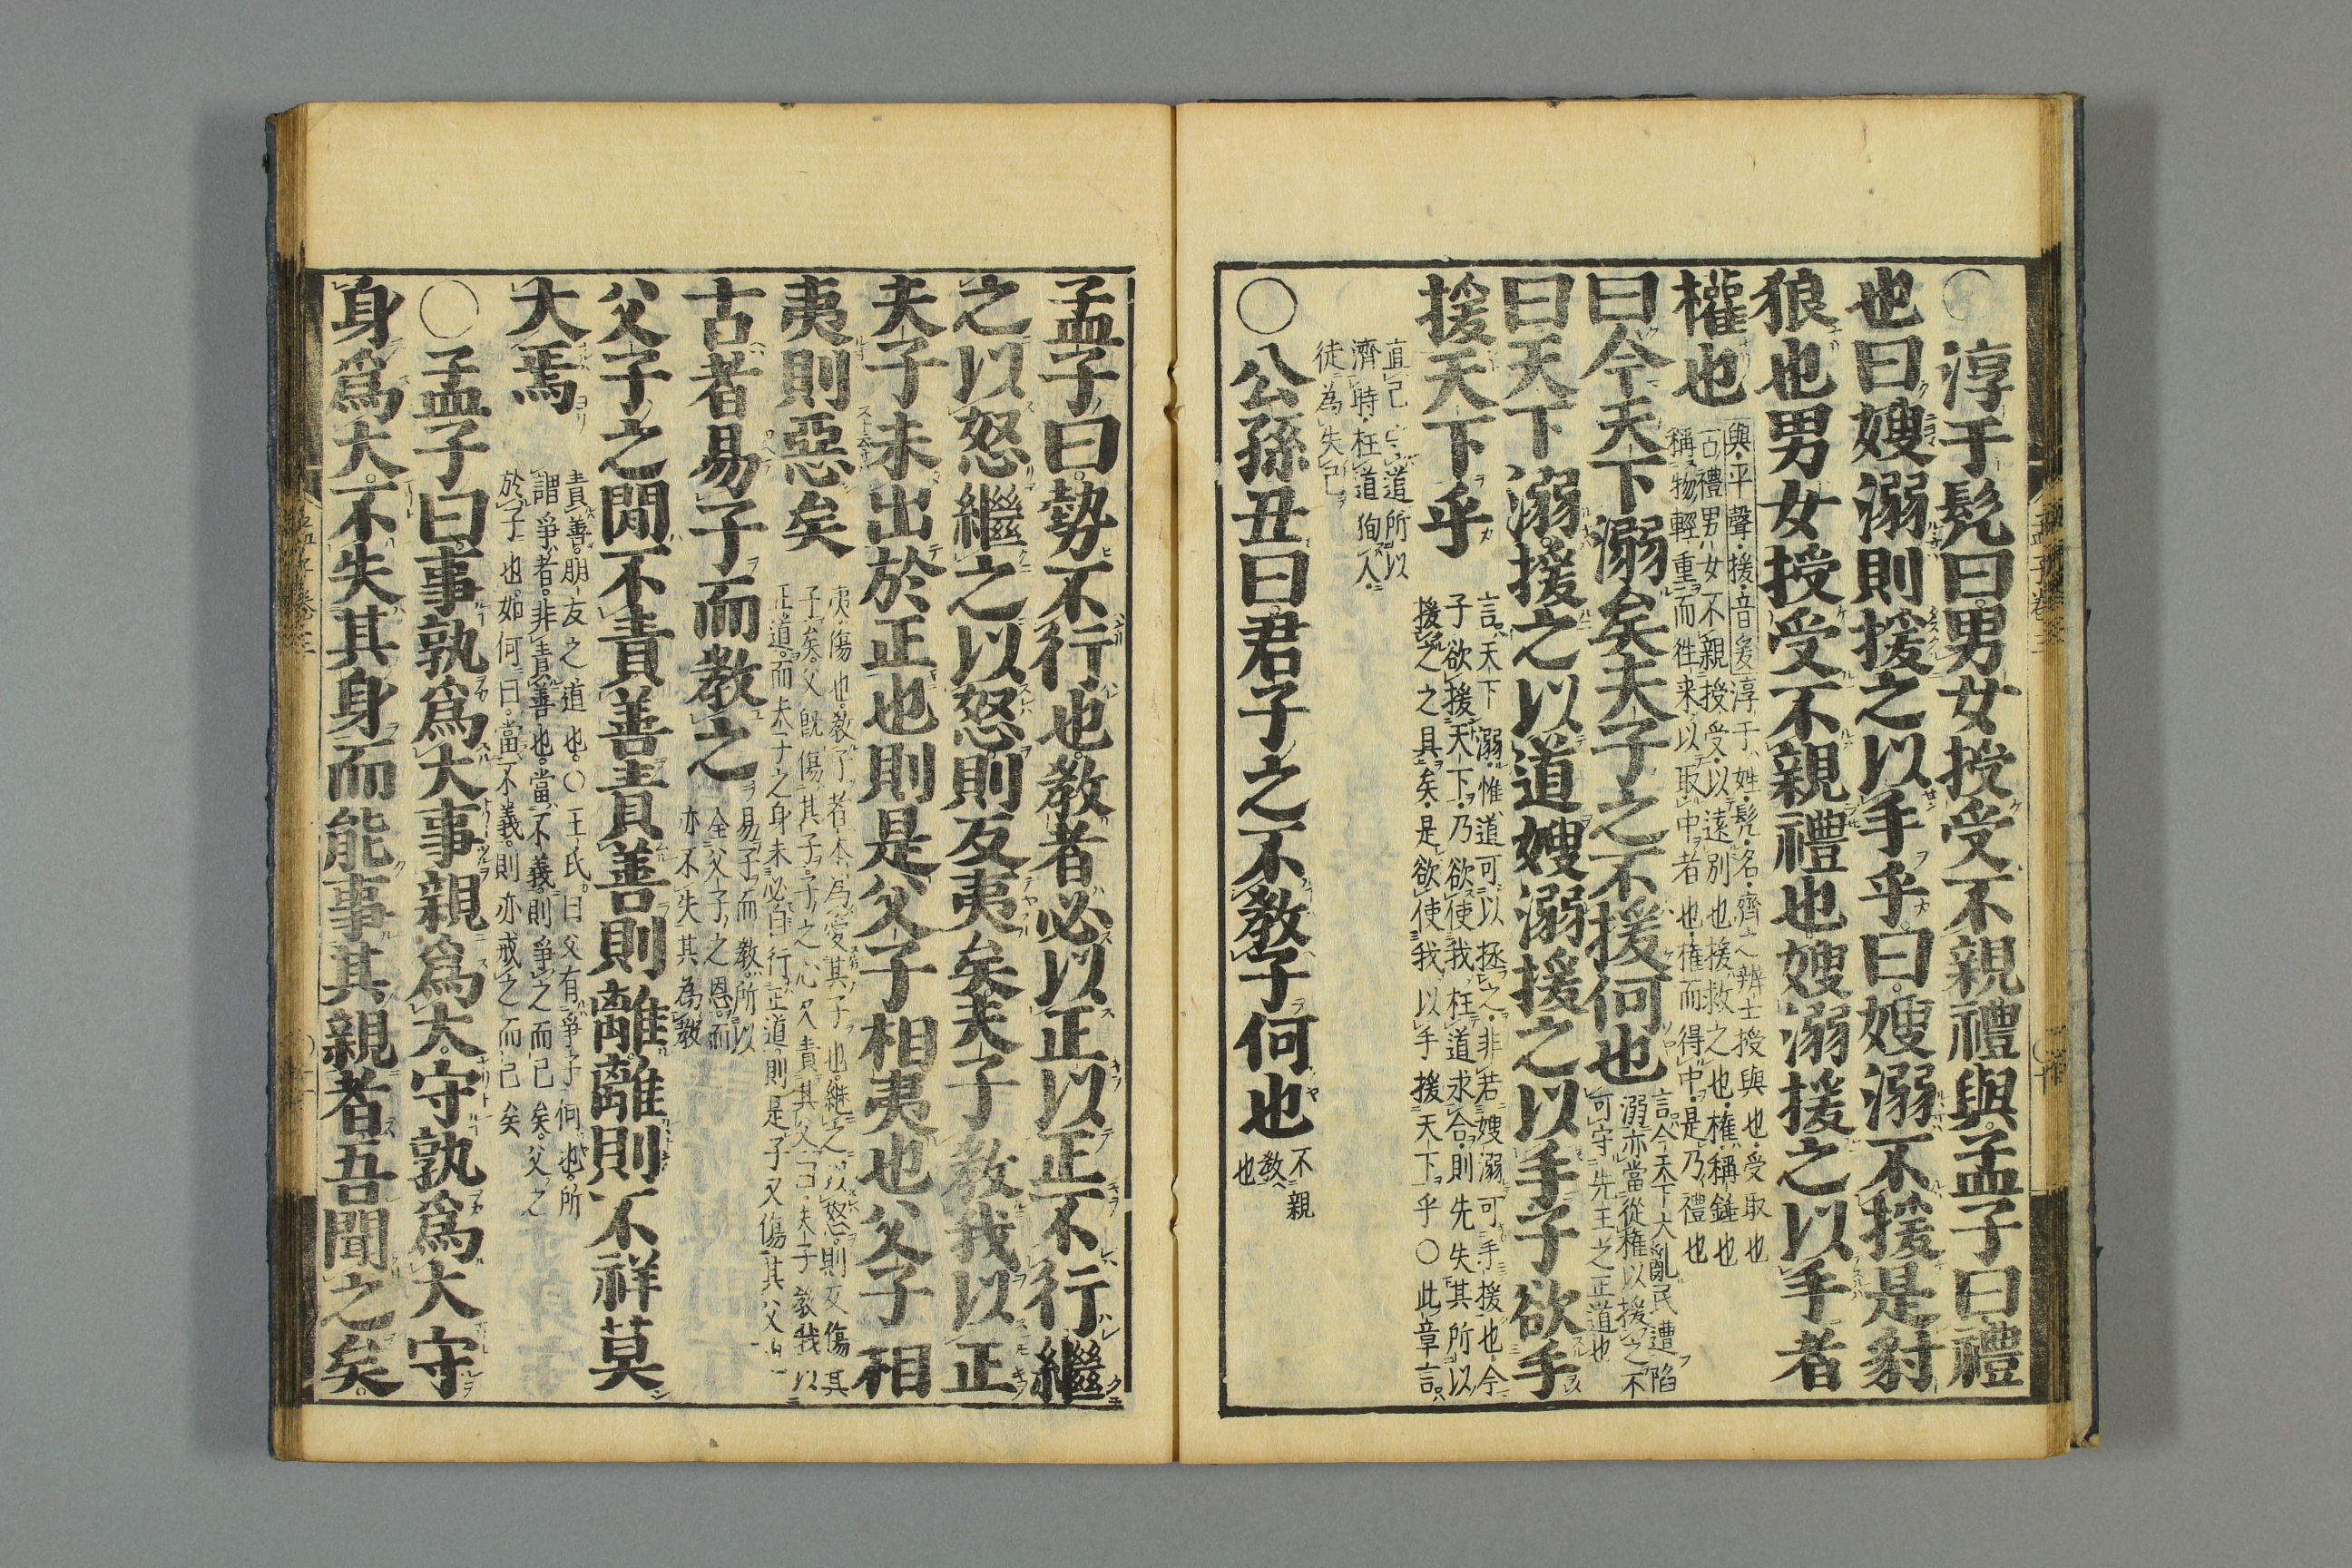 ○淳于髡曰男女授受不親禮與孟子曰禮
也曰嫂溺則援之以手乎曰嫂溺不援是豺
狼也男女授受不親禮也嫂溺援之以手者
權也
與平聲援音爰淳于姓髡名齊之辨士授與也受取也
古禮男女不親授受以遠別也援救之也権稱錘也
稱物輕重而徃来以取中者也権而得中是乃禮也
曰今天下溺矣夫子之不援何也
言今天下大亂民遭陷
溺亦當從権以援之不
可守先王之正道也
曰天下溺援之以道嫂溺援之以手子欲手
援天下乎
言天下溺惟道可以拯之非若嫂溺可手援也今
子欲援天下乃欲使我枉道求合則先失其所以
援之之具矣是欲使我以手援天下乎○此章言
直己守道所以
濟時枉道狥人
徒為失己
○公孫丑曰君子之不教子何也
不親
教也
孟子曰勢不行也教者必以正以正不行繼
之以怒繼之以怒則反夷矣夫子教我以正
夫子未出於正也則是父子相夷也父子相
夷則惡矣
夷傷也教子者本為愛其子也継之以怒則反傷其
子矣父既傷其子子之心又責其父曰夫子教我以
正道而夫子之身未必自行正道則是子又傷其父也
古者易子而教之
易子而教所以
全父子之恩而
亦不失其為教
父子之閒不責善責善則離離則不祥莫
大焉
責善朋友之道也○王氏曰父有爭子何也所
謂爭者非責善也當不義則爭之而已矣父之
於子也如何曰當不義則亦戒之而已矣
○孟子曰事孰爲大事親爲大守孰爲大守
身爲大不失其身而能事其親者吾聞之矣